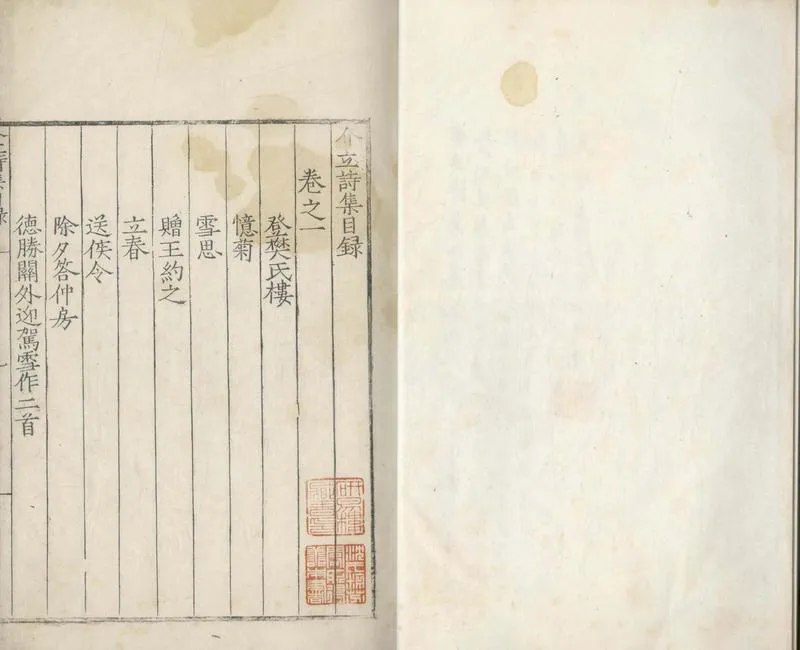 介立詩集目録
卷之一
登樊氏樓
憶菊
雪思
贈王約之
立春
送侯令
除夕答仲房
德勝關外迎駕雪作二首
立詩集目録
研易樓
藏書印